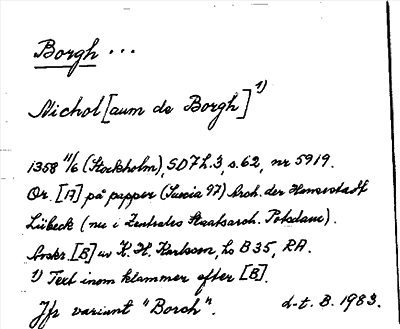 Borgh ...
Nichol[aum de Borgh] 1)
1358 11/6 (Stockholm), SD7 h.3, s.62, nr 5919.
Or. [A] på papper (Suecia 97) Arch. der Hansestadt
Lübeck (nu i Zentrales Staatsarch. Potsdam).
Avskr. [B] av K. H. Karlsson, hs B 35, RA.
1) Text inom klammer efter [B].
Jfr variant "Borch".
d-t. B. 1983.